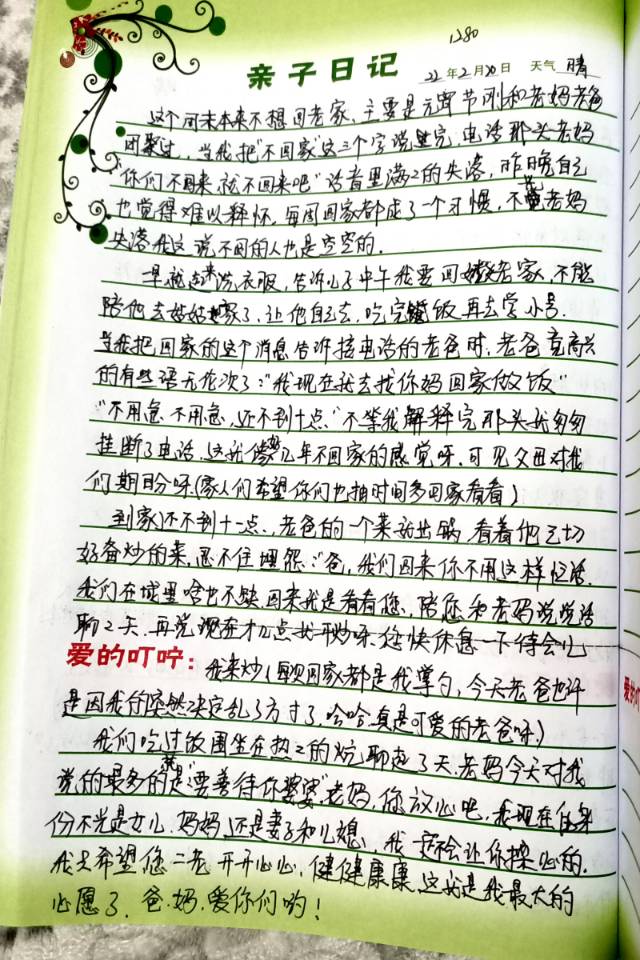 1280
亲子日记 22年2月20日 天气 晴
这个周末本来不想回老家,主要是元宵节刚和老妈老爸
团聚过,当我把"不回家"这三个字说完,电话那头老妈
"你们不回来就不回来吧"话音里满满的失落,昨晚自己
也觉得难以释怀,每周回家都成了一个习惯,不光老妈
失落我这说不回的人也是空空的.
一早就起来洗衣服,告诉儿子中午我要回姥姥家,不能
陪他去姑姑家了,让他自己去,吃完饭再去学小号.
当我把回家的这个消息告诉接电话的老爸时,老爸竟高兴
的有些语无伦次了:"我现在就去找你妈回家做饭"
"不用急不用急,还不到十点"不等我解释完那头就匆匆
挂断了电话,这就像几年不回家的感觉呀,可见父母对我
们期盼呀(家人们希望你们也抽时间多回家看看)
到家还不到十一点,老爸的一个菜就出锅,看着他已切
好备炒的菜,忍不住埋怨:"爸,我们回来你不用这样忙活,
我们在城里啥也不缺,回来就是看看您,陪您和老妈说说话
聊聊天,再说现在才几点就开炒呀,您快休息一下待会儿
爱的叮咛: 我来炒(每次回家都是我掌勺,今天老爸也许
是因我们的突然决定乱了方寸了,哈哈,真是可爱的老爸呀)
我们吃过饭围坐在热热的炕聊起了天,老妈今天对我
说的最多的就是"要善待你婆婆"老妈,你放心吧,我现在的身
份不光是女儿,妈妈,还是妻子和儿媳,我一定不会让你操心的.
我只希望您二老开开心心,健健康康,这就是我最大的
心愿了.爸.妈.爱你们哟!
爱的叮